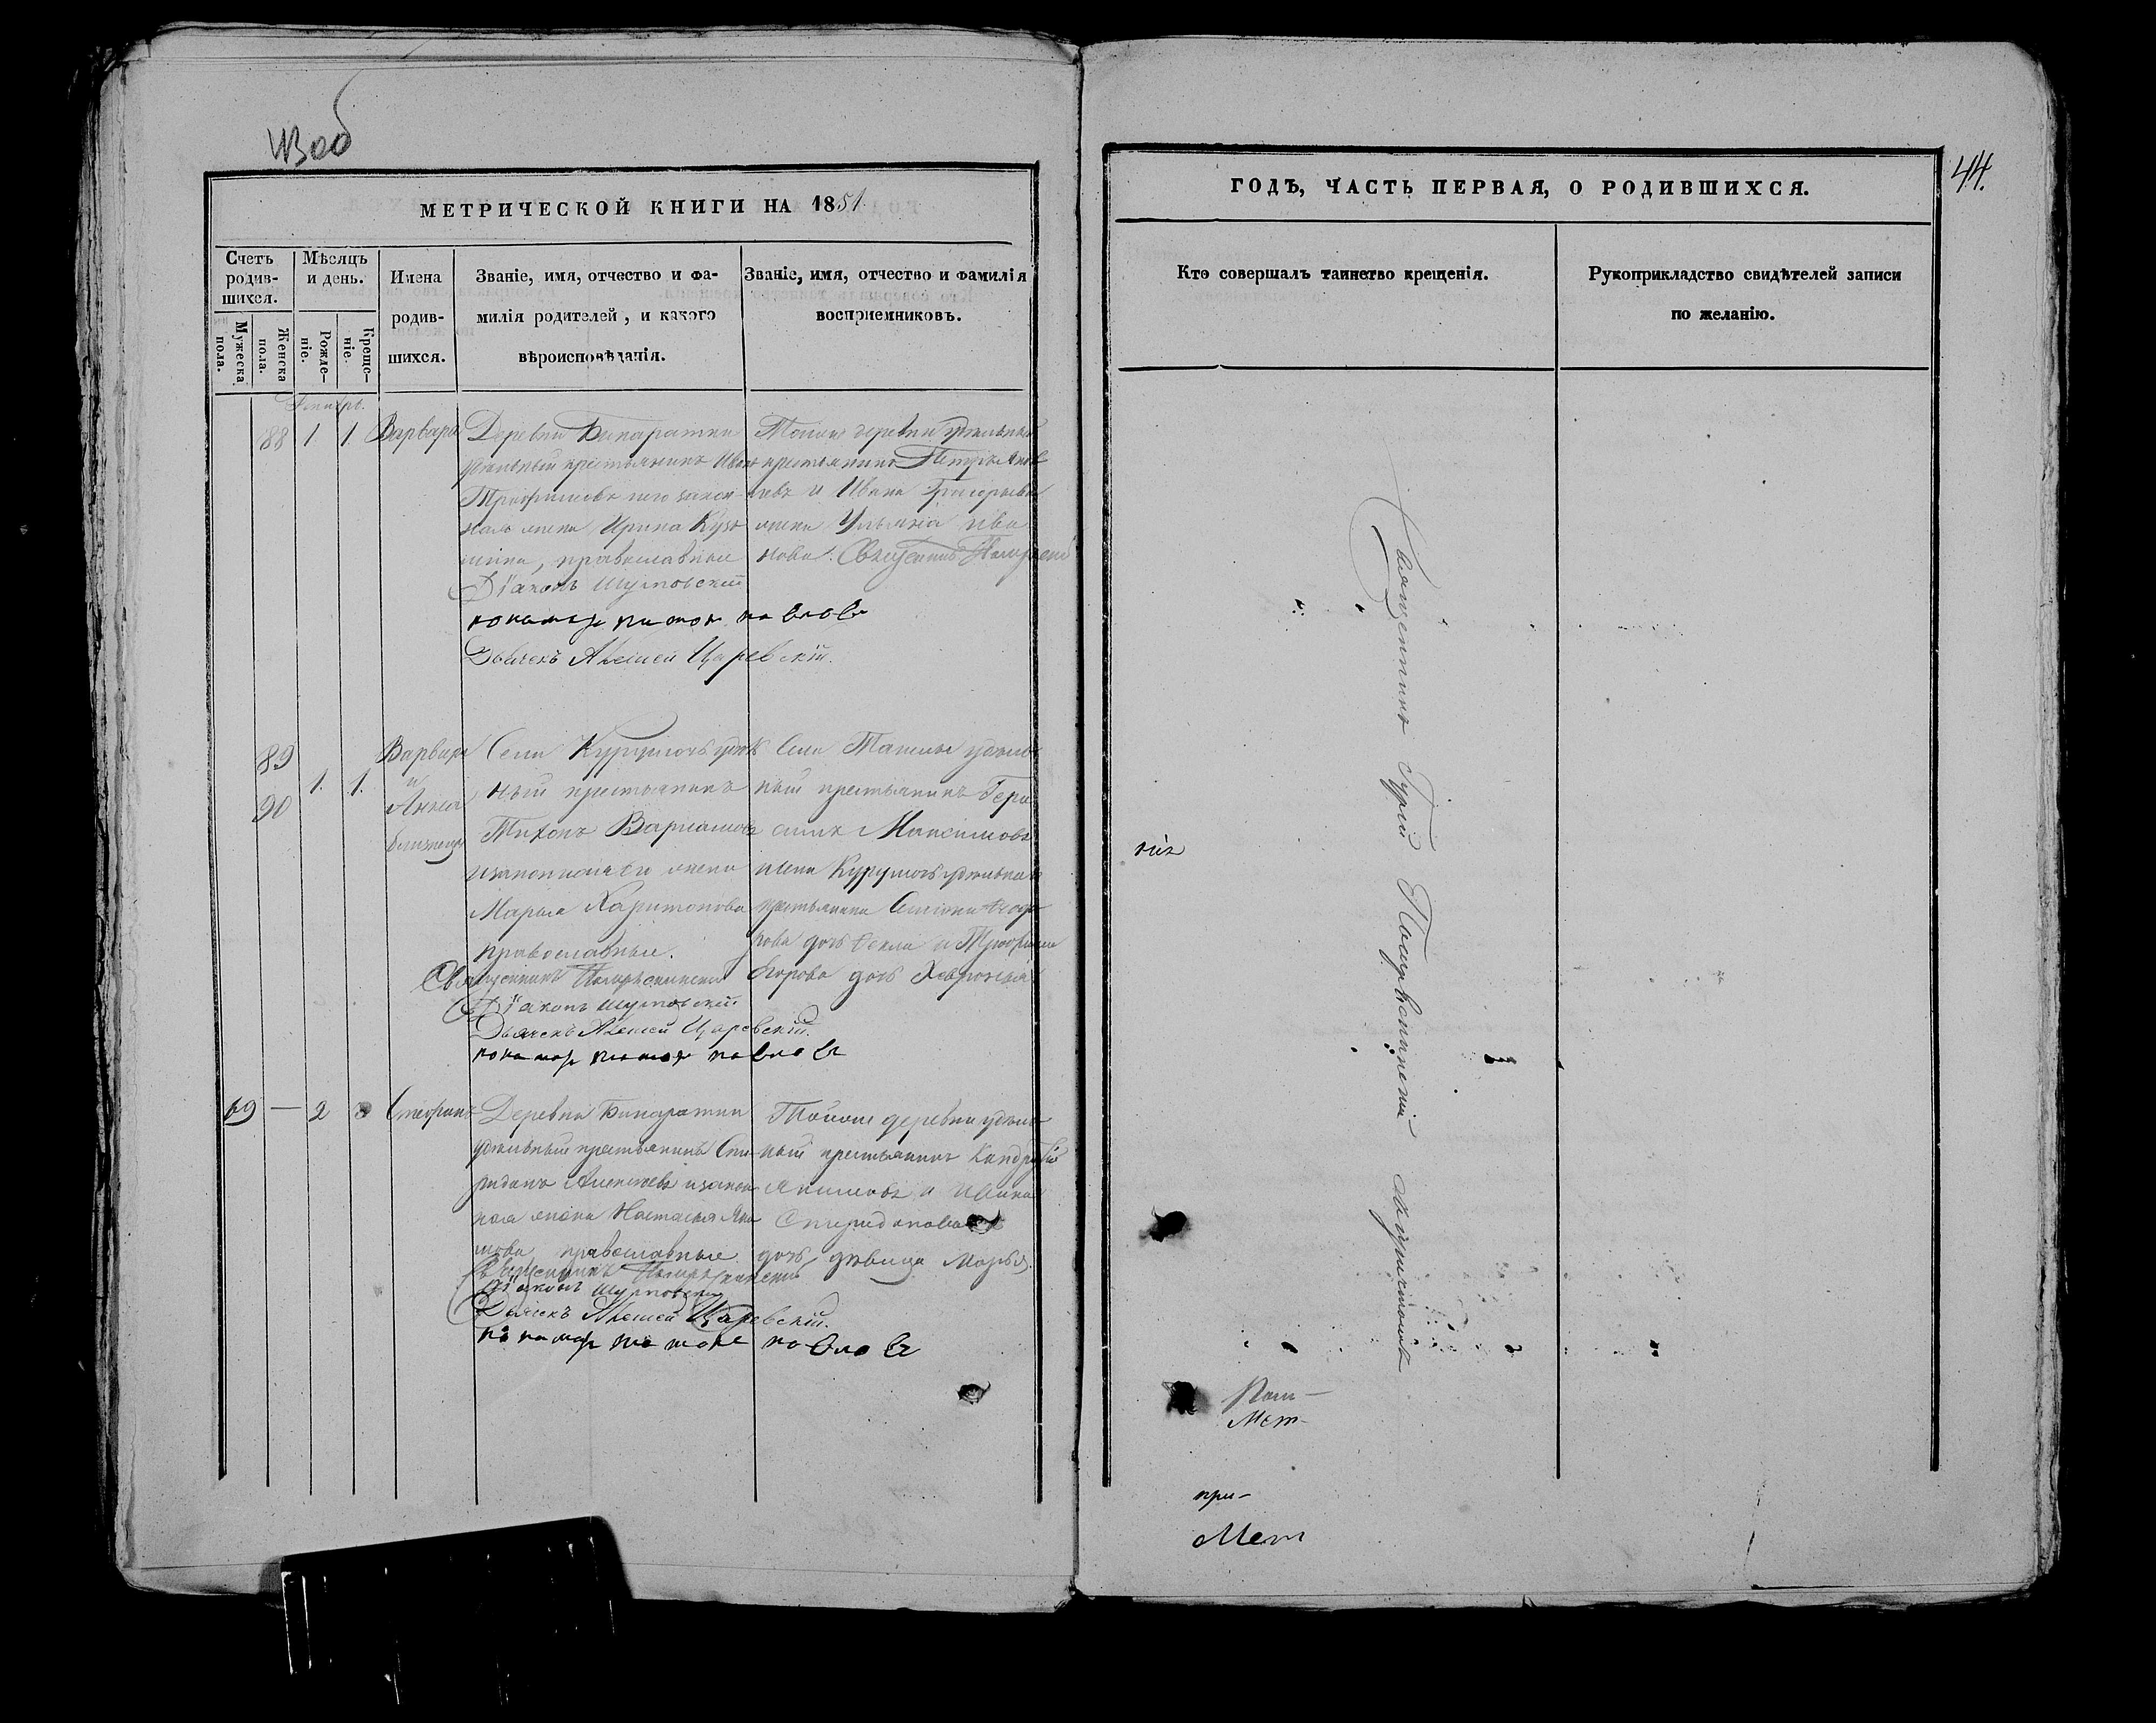 43об
МЕТРИЧЕСКОЙ КНИГИ НА 1851.
Счетъ родив-шихся.
Мужеска пола.
Женска пола.
Мѣсяцъ и день.
Рожде-ніе.
Креще-ніе.
Имена родив-шихся.
Званіе, имя, отчество и фа-
милія родителей, и какого
вѣроисповѣданія.
Званіе, имя, отчество и фамилія
воспріемниковъ.
88 1 1 Варвара
Деревни Бинарадки
удѣльный крестьянинъ Иванъ
Трофимовъ и его закон-
ная жена Ирина Кузь
мина, православные
Діаконъ Шутовскій
Пономарь Платонъ Павловъ
Дьячекъ Алексей Царевскій.
Тойже деревни удѣльный
крестьянинъ Петръ Яков
левъ и Ивана Григорьева
жена Ульянія Ива
нова. Священникъ
89
90
1. 1.
Варвара
и
Анна
близнецы
Села Курумочъ удѣль
ный крестьянинъ
Тихонъ Варламовъ
и законная его жена
Марья Харитонова
православные.
Священникъ
Діаконъ Шутовскій.
Дьячекъ Алексей Царевскій.
Пономарь Платонъ Павловъ
Села Ташлы удѣль
ный крестьянинъ Гера
симъ Максимовъ
села Курумочъ удѣльнаго
крестьянина Симіона Ѳеодо
рова дочь Ѳекла и Трофима
Егорова дочь Хевронья
69 — 2 3 Стефанъ
Деревни Бинарадки
удѣльный крестьянинъ Спи-
ридонъ Алексѣевъ и закон
ная жена Настасья Яки
мова, православные
Священникъ
Діаконъ Шутовскій
Дьячекъ Алексей Царевскій.
Пономарь Платонъ Павловъ
Тойже деревни удѣль
ный крестьянинъ Кондратій
Якимовъ и Ивана
Спиридонова
дочь, дѣвица Марья.
ГОДЪ, ЧАСТЬ ПЕРВАЯ, О РОДИВШИХСЯ.
44.
Кто совершалъ таинство крещенія.
Рукоприкладство свидѣтелей записи
по желанію.
Священникъ Гурій
при-